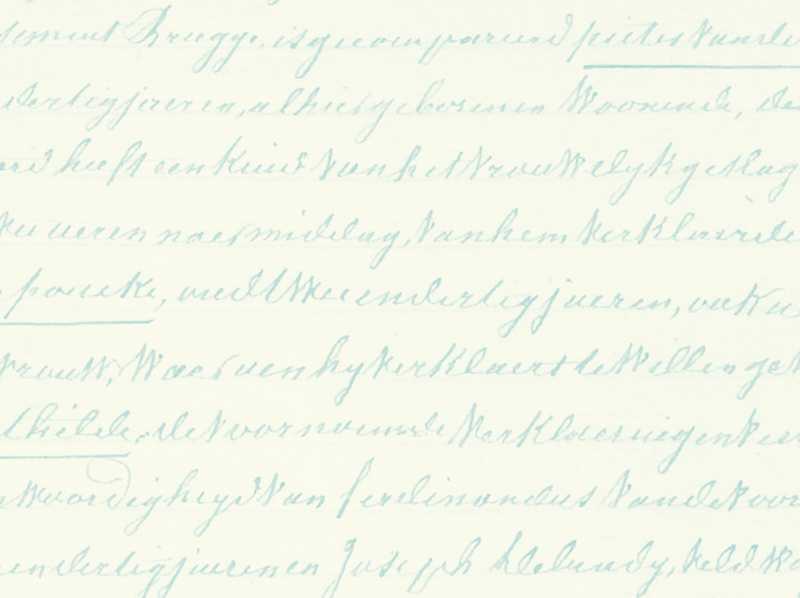 Brugge, is gecompareerd pieter Vande
dertig jaeren, alhier geboren en Woonende, de
heeft een Kind Van het Vrouwelyk geslag
ueren naermiddag, Van hem Verklaerde
poucke, oud tweeendertig jaeren,
Vrouw, Waer aen hy Verklaert te Willen ge
thilde, de Voornoemde Verklaeringen
woordigheyd Van ferdinandus Vande Voor
endertig jaeren en Joseph